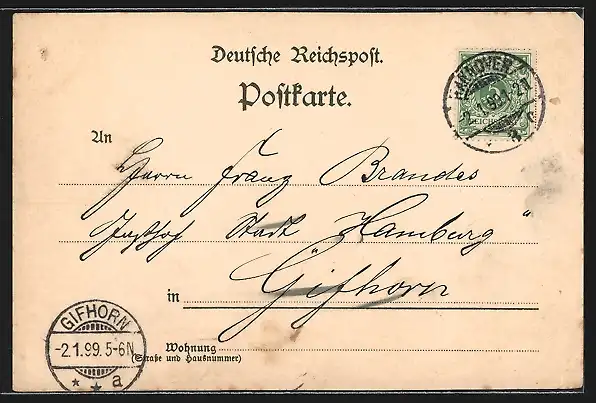 Deutsche Reichspost.
Postkarte.
HANNOVER
2.1.99
REICHSPOST
An
Herrn Franz Brandes
Gasthof Stadt Hamburg"
in Gifhorn
Wohnung
(Straße und Hausnummer)
GIFHORN
-2.1.99.5-6N
* * a